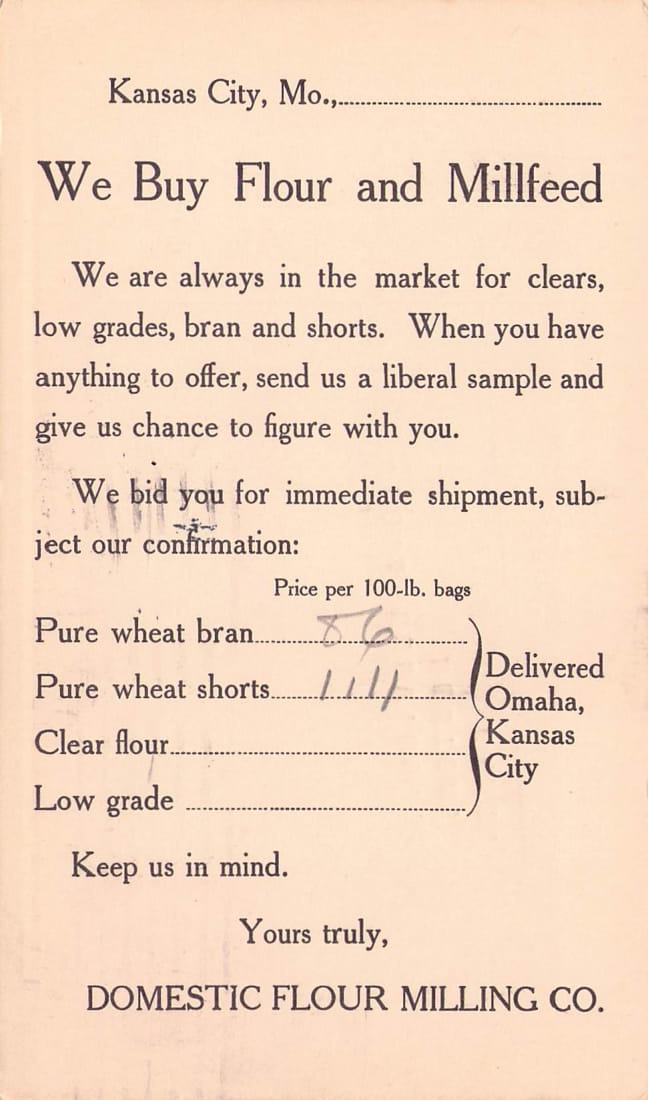 Kansas City, Mo.,
We Buy Flour and Millfeed
We are always in the market for clears,
low grades, bran and shorts. When you have
anything to offer, send us a liberal sample and
give us chance to figure with you.
We bid you for immediate shipment, sub-
ject our confirmation:
Price per 100-lb. bags
Pure wheat bran 86
Pure wheat shorts
Clear flour
Low grade
Delivered
Omaha,
Kansas
City
Keep us in mind.
Yours truly,
DOMESTIC FLOUR MILLING CO.